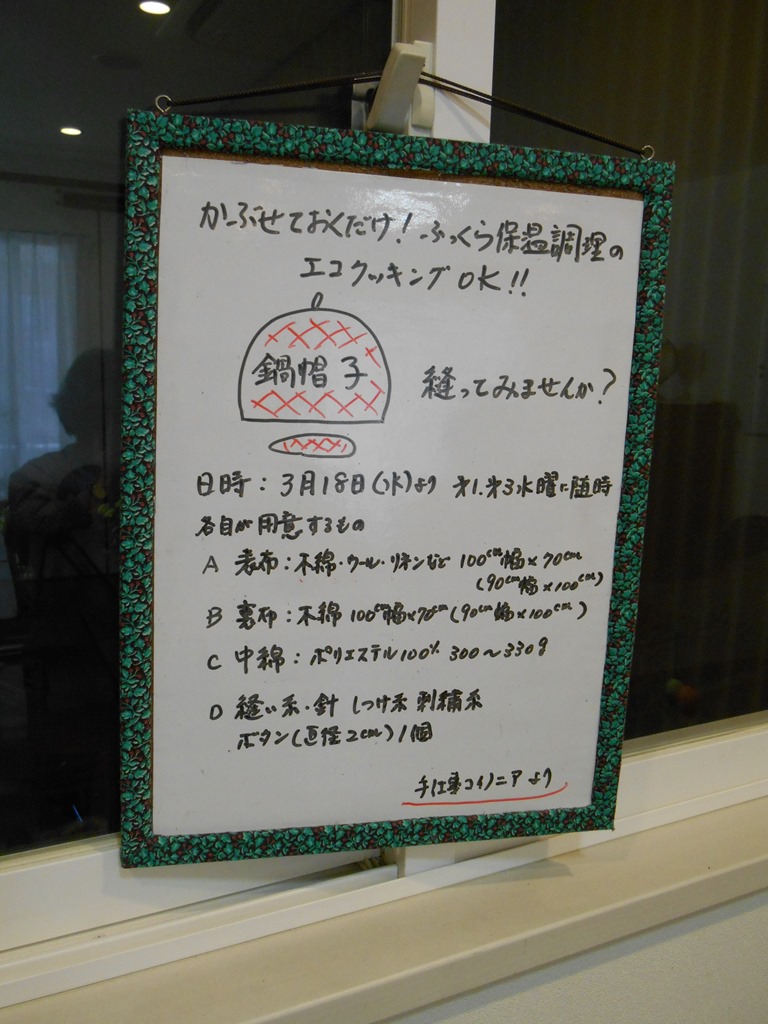 かぶせておくだけ！ふっくら保温調理の
エコクッキングOK!!
鍋帽子
縫ってみませんか？
日時：3月18日(水)より 第1.第3水曜に随時
各自が用意するもの
A 表布：木綿・ウール・リネンなど 100cm幅×70cm
(90cm幅×100cm)
B 裏布：木綿 100cm幅×70cm(90cm幅×100cm)
C 中綿：ポリエステル100% 300～330g
D 縫い糸・針 しつけ糸 刺繍糸
ボタン(直径2cm)1個
手仕事コイノニアより